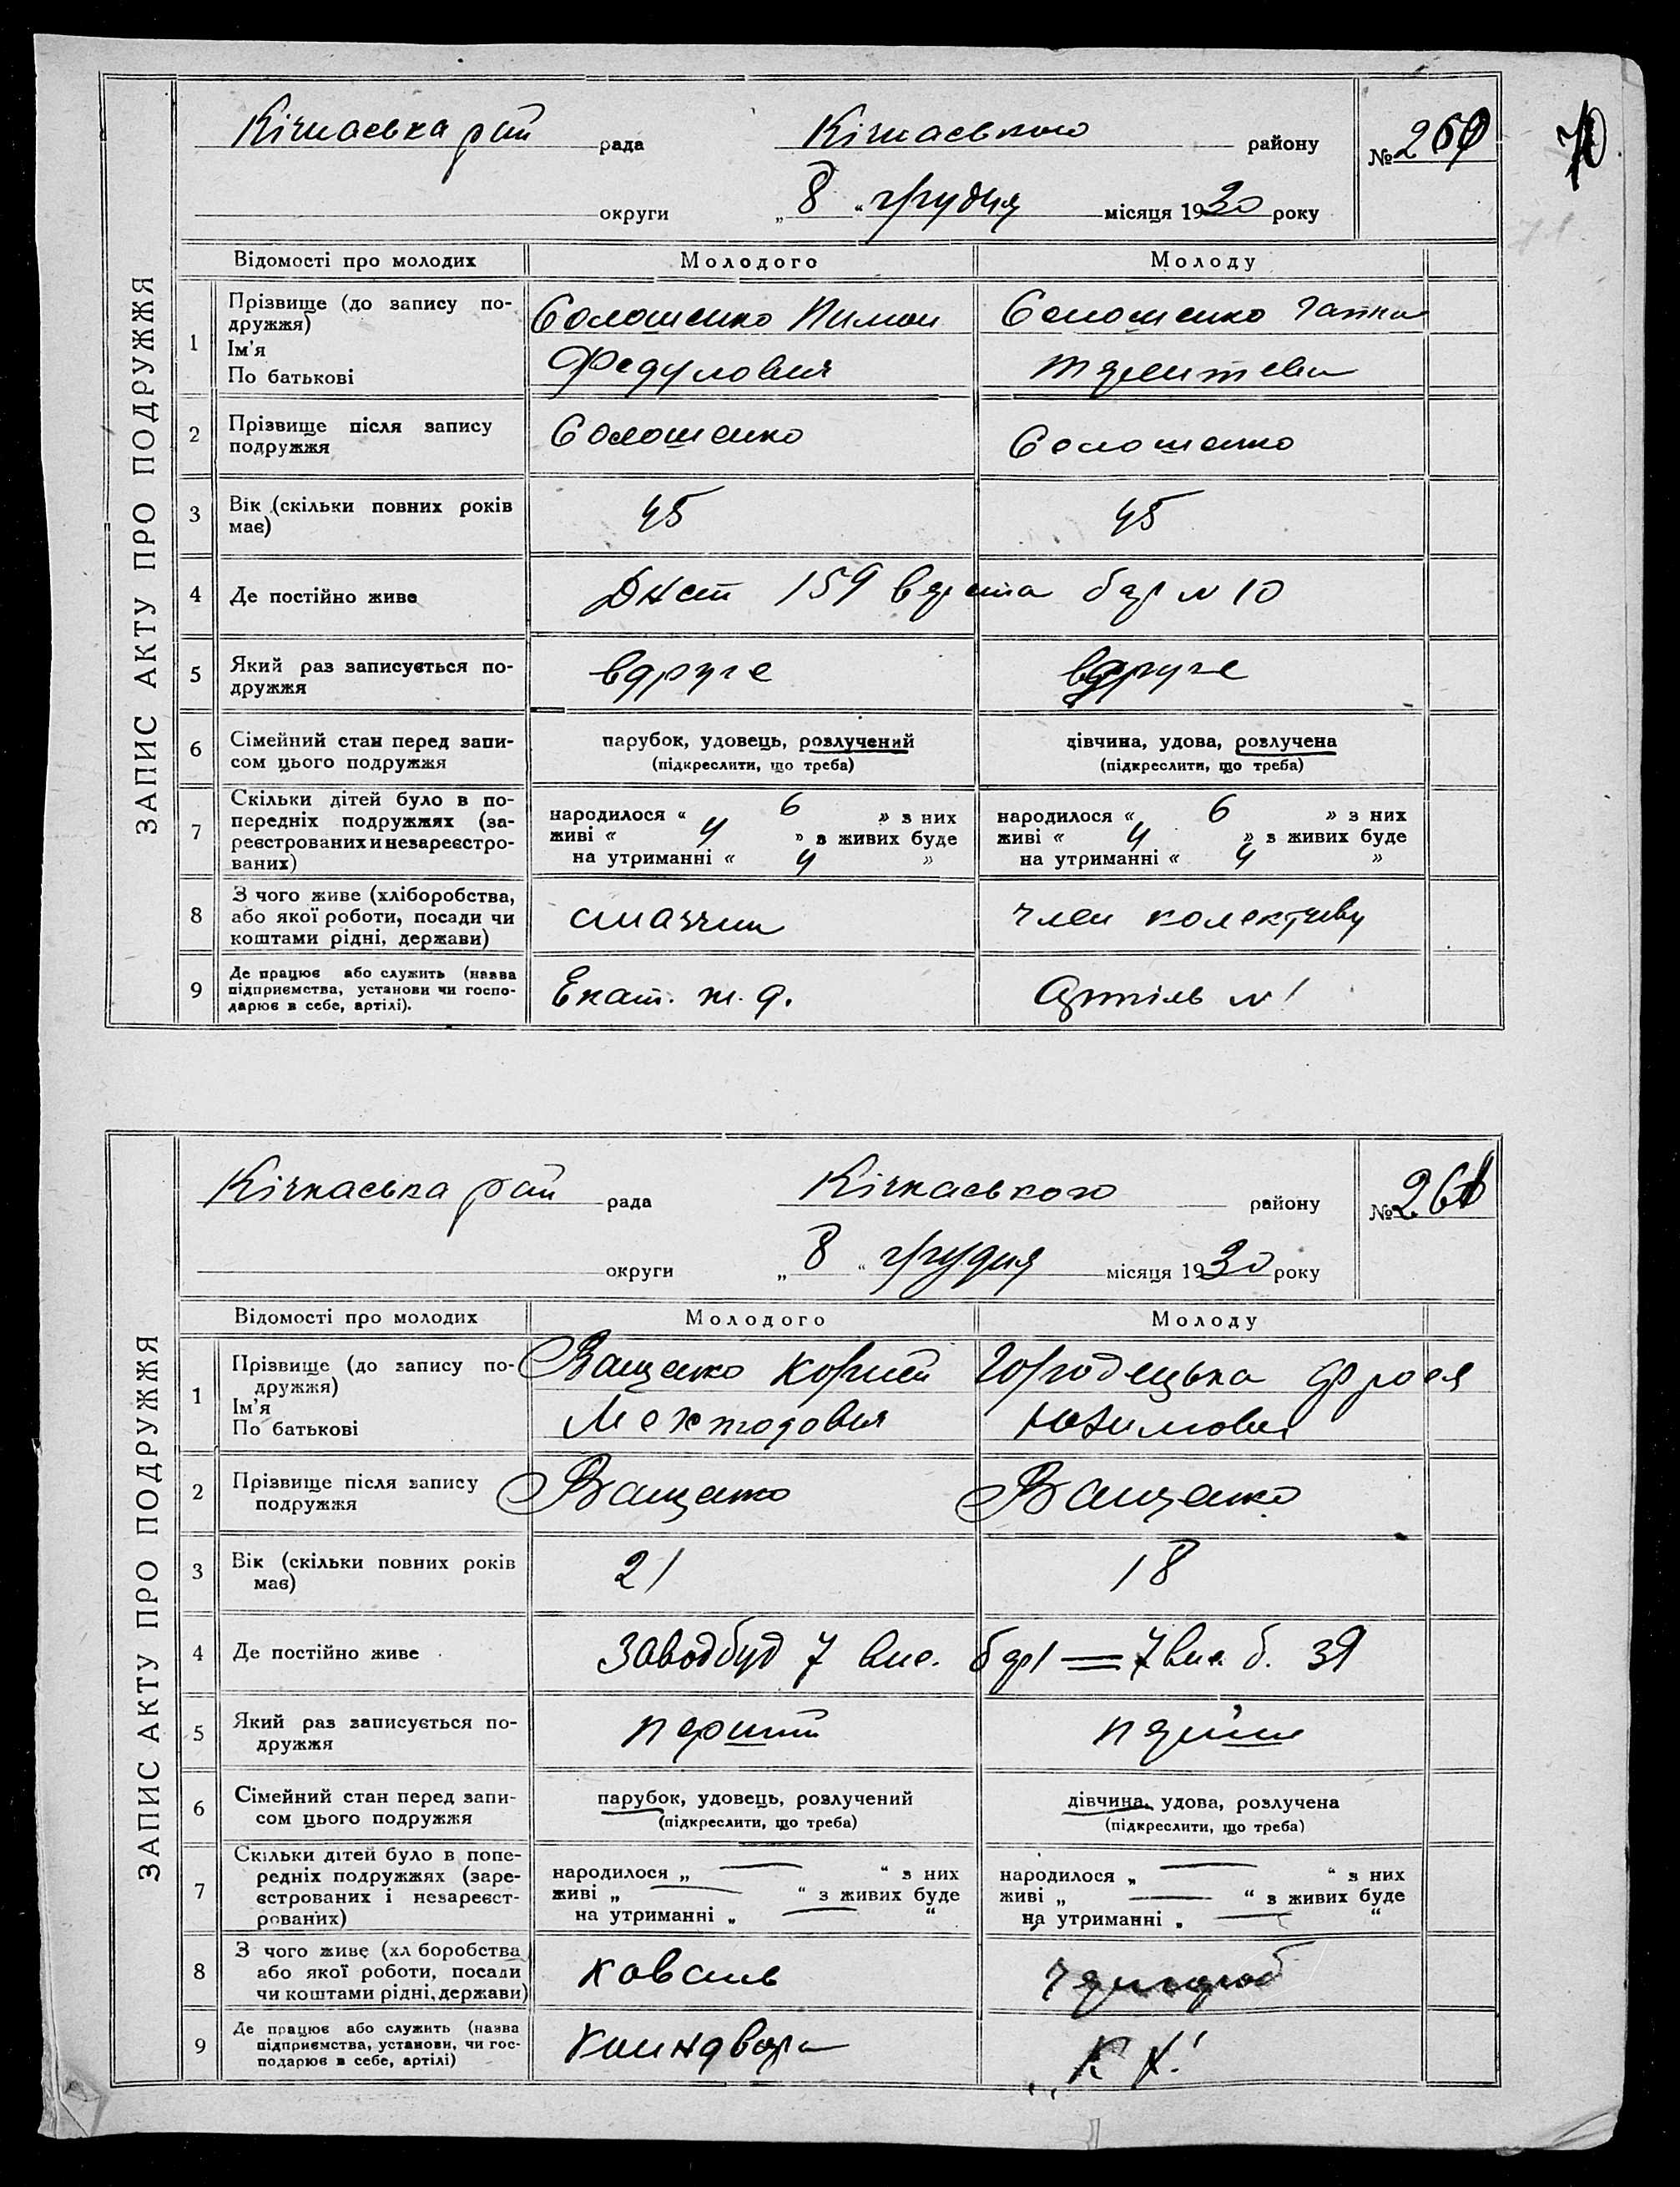 ЗАПИС АКТУ ПРО ПОДРУЖЖЯ
Кічкаська рай рада Кічкаського району № 260
округи „ 8 “ грудня місяця 1930 року
Відомості про молодих Молодого Молоду
1 Прізвище (до запису по-
дружжя)
Ім'я
По батькові
Солошенко Пимон
Федулович
Солошенко Гапка
2 Прізвище після запису
подружжя
Солошенко Солошенко
3 Вік (скільки повних років
має)
45 45
4 Де постійно живе
159 верста бар N 10
5 Який раз записується по-
дружжя
вдруге вдруге
6 Сімейний стан перед запи-
сом цього подружжя
парубок, удовець, розлучений
(підкреслити, що треба)
дівчина, удова, розлучена
(підкреслити, що треба)
7 Скільки дітей було в по-
передніх подружжях (за-
реєстрованих и незареєстро-
ваних)
народилося “ 6 » з них
живі “ 4 » з живих буде
на утриманні “ 4 »
народилося “ 6 » з них
живі “ 4 » з живих буде
на утриманні “ 4 »
8 З чого живе (хліборобства,
або якої роботи, посади чи
коштами рідні, держави)
смазчик член колективу
9 Де працює або служить (назва
підприємства, установи чи госпо-
дарює в себе, артілі).
Екат. ж. д. Артіль N 1
ЗАПИС АКТУ ПРО ПОДРУЖЖЯ
Кічкаська рай рада Кічкаського району № 261
округи „ 8 “ грудня місяця 1930 року
Відомості про молодих Молодого Молоду
1 Прізвище (до запису по-
дружжя)
Ім'я
По батькові
Ващенко Корній
Мехтодович
Городецька Фрося
Юхимовна
2 Прізвище після запису
подружжя
Ващенко Ващенко
3 Вік (скільки повних років
має)
21 18
4 Де постійно живе
Заводбуд 7 вис. бар 1 = 7 вис. б. 39
5 Який раз записується по-
дружжя
перший перше
6 Сімейний стан перед запи-
сом цього подружжя
парубок, удовець, розлучений
(підкреслити, що треба)
дівчина, удова, розлучена
(підкреслити, що треба)
7 Скільки дітей було в попе-
редніх подружжях (заре-
єстрованих і незареєст-
рованих)
народилося „ — “ з них
живі „ — “ з живих буде
на утриманні „ — “
народилося „ — “ з них
живі „ — “ з живих буде
на утриманні „ — “
8 З чого живе (хл боробства
або якої роботи, посади
чи коштами рідні, держави)
коваль чорнороб
9 Де працює або служить (назва
підприємства, установи, чи гос-
подарює в себе, артілі)